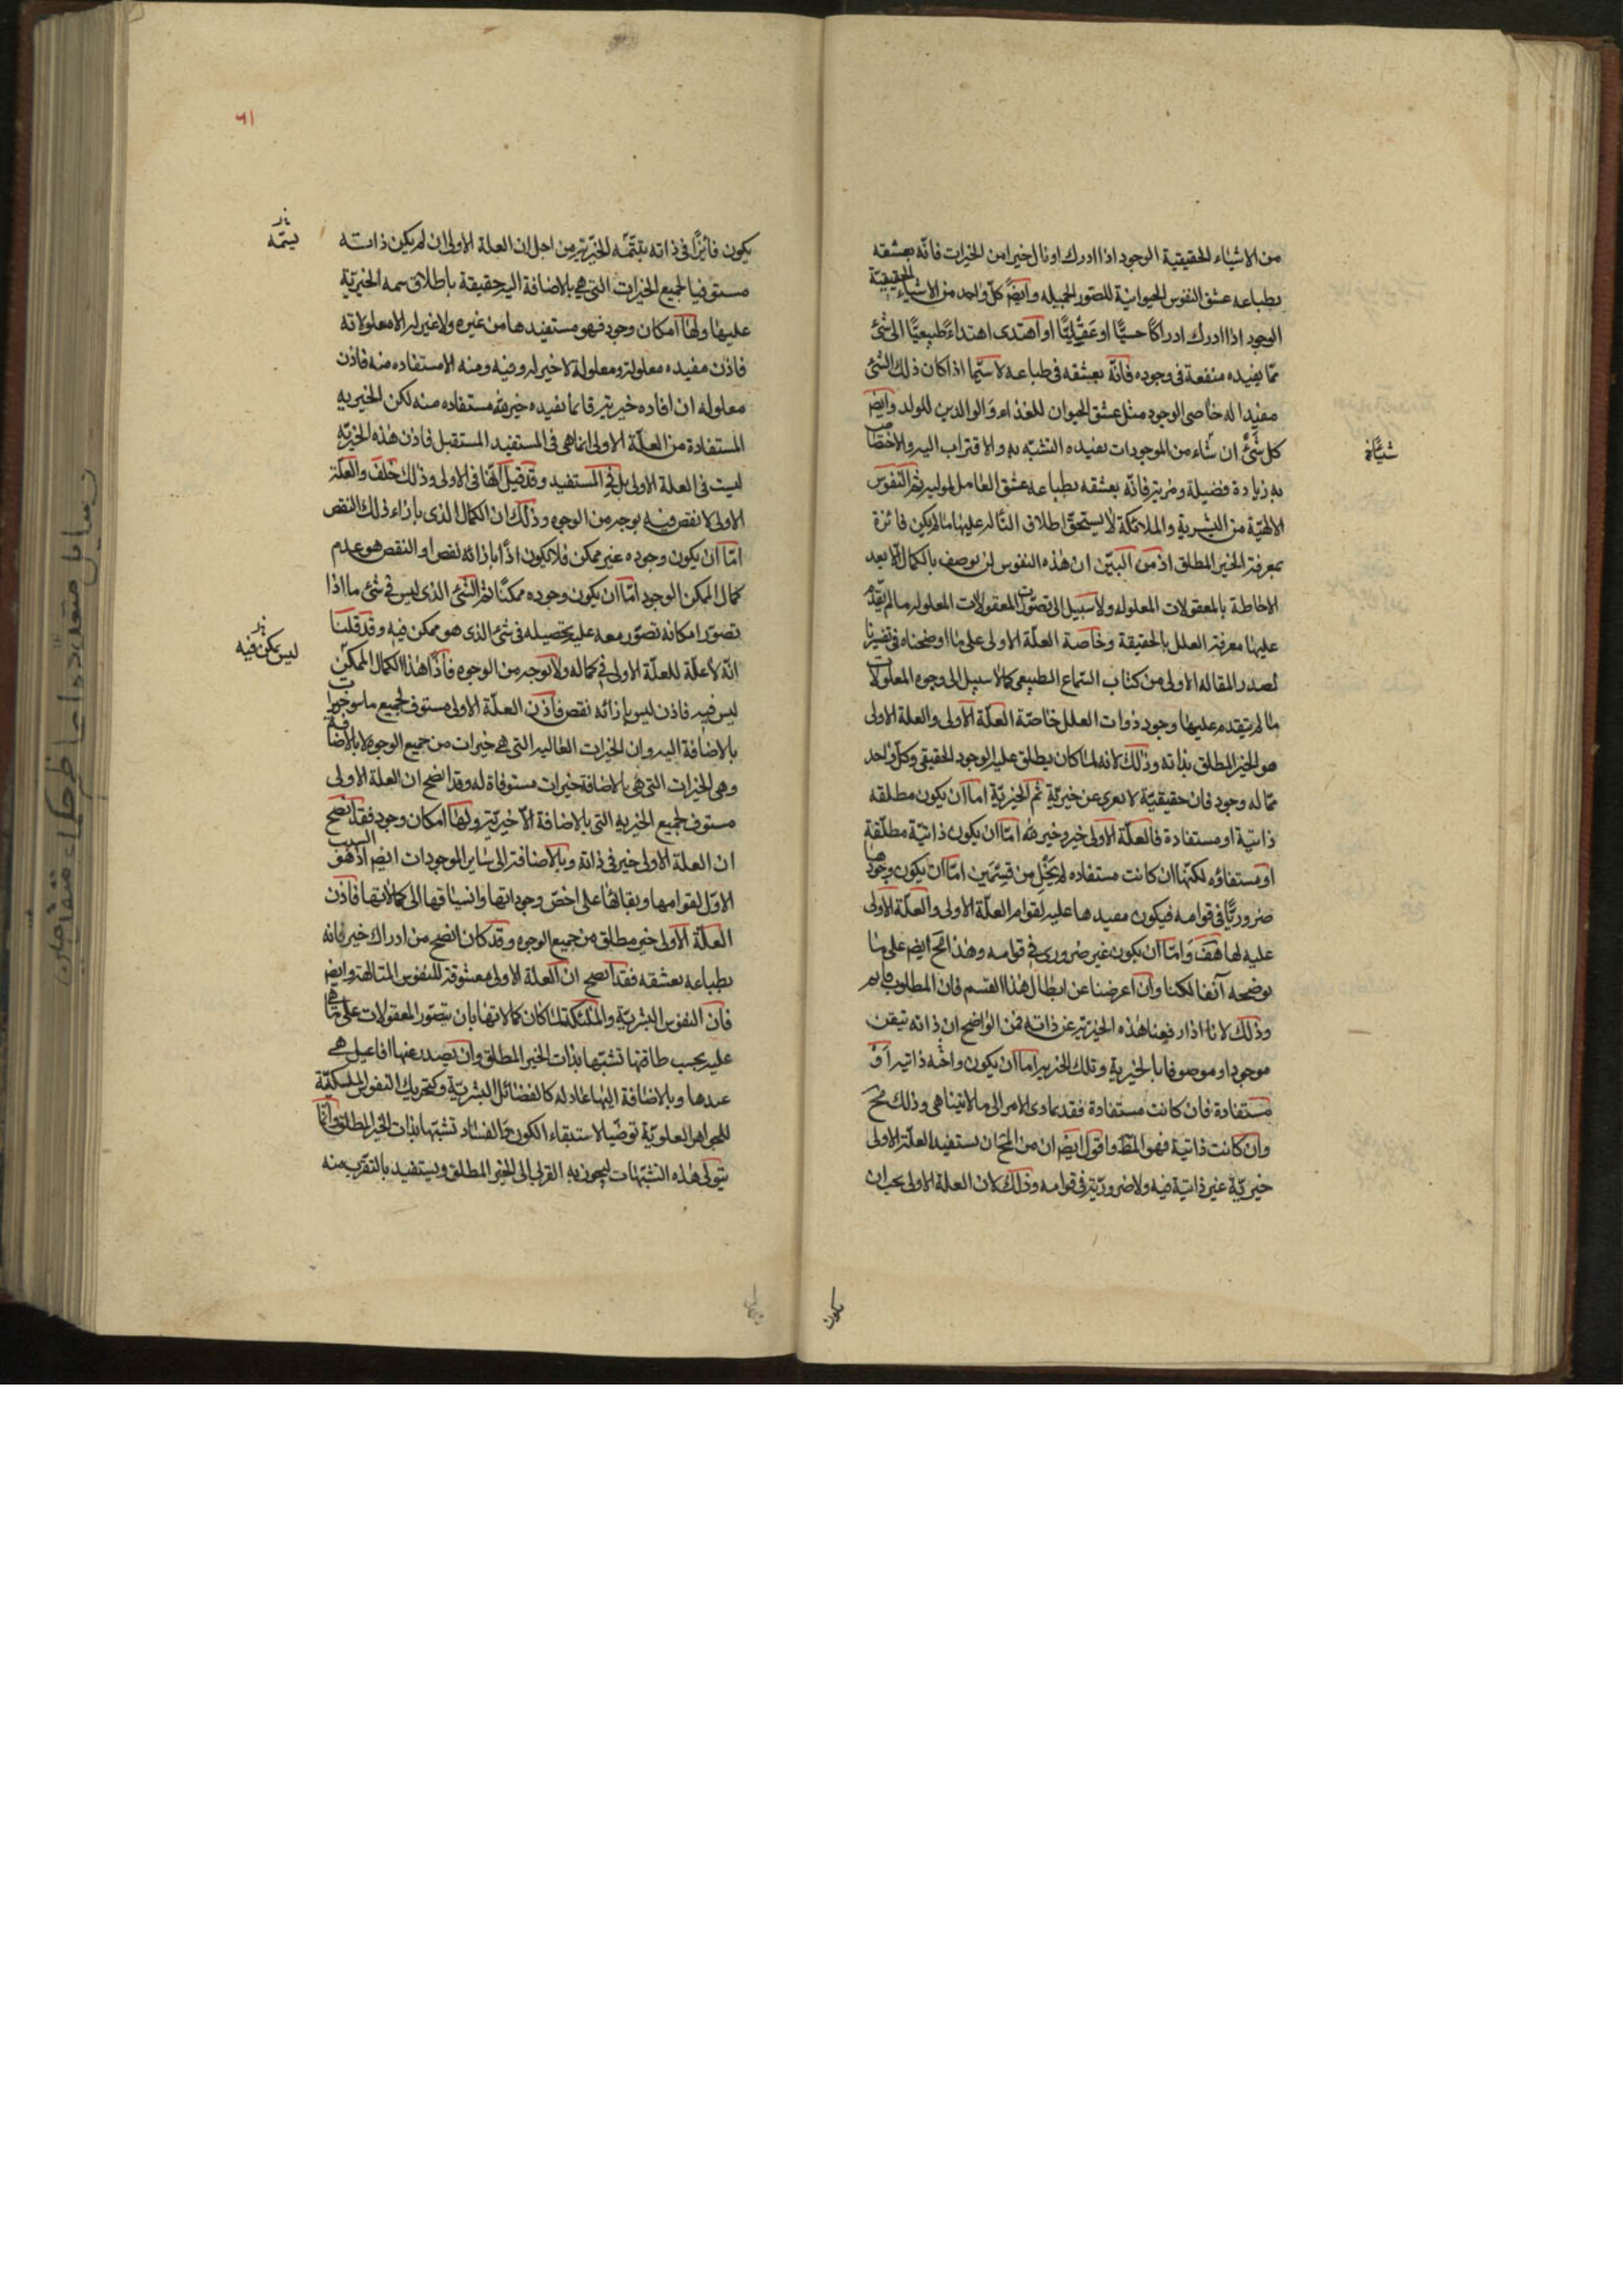 من الاشیاء الحقیقیة الوجود اذا ادرك او نال خیرا من الخیرات فانّه یعشقه
بطباعه عشق النفوس الحیوانیّة للصّور الجمیله وایضً كلّ واحد من الاشیاء الحقیقیّة
الوجود اذا ادرك ادراكًا حسیًّا او عقلیًّا او اهتدی اهتداءً طبیعیًّا الی شئ
ممّا یفیده منفعة فی وجوده فانّه یعشقه فی طباعه لا سیّما اذا كان ذلك الشئ
مفیدا له خاصی الوجود مثل عشق الحیوان للغذاء والوالدین للولد وایضً
كل شئ ان شاء من الموجودات یفیده التشبّه به والاقتراب الیه والاختصاص
شیئًا خ
به زیادة فضیلة ومزیة فانّه یعشقه بطباعه عشق العامل لمولیه ثم النفوس
الالهیّة من البشریة والملائكة لا یستحقّ اطلاق التألّه علیها ما لم یكن فائزة
بمعرفة الخیر المطلق اذ من البیّن ان هذه النفوس لن یوصف بالكمال الا بعد
الاحاطة بالمعقولات المعلوله ولا سبیل الی تصوّر المعقولات المعلوله ما لم یتقدّم
علیها معرفة العلل بالحقیقة وخاصة العلّة الاولی علی ما اوضحناه فی تفسیرنا
لصدر المقاله الاولی من كتاب السّماع الطبیعی كما لا سبیل الی وجود المعلولات
ما لم یتقدم علیها وجود ذوات العلل خاصّة العلّة الاولی والعلة الاولی
هو الخیر المطلق بذاته وذلك لانه لما كان یطلق علیه الوجود الحقیقی وكلّ واحد
ممّا له وجود فان حقیقیّة لا یعری عن خیریّة ثم الخیریّة اما ان یكون مطلقه
ذاتیّة او مستفادة فالعلّة الاولی خیر وخیریته امّا ان یكون ذاتیّة مطلقة
او مستفاده لكنّها ان كانت مستفاده لم یخل من قسمین امّا ان یكون وجودها
ضروریًّا فی قوامه فیكون مفیدها علیه لقوام العلّة الاولی والعلّة الاولی
علیه لها هف وامّا ان یكون غیر ضروری فی قوامه وهذا مح ایضً علی ما
نوضحه آنفا لكنا وان اعرضنا عن ابطال هذا القسم فان المطلوب قایم
وذلك لانا اذا رفعنا هذه الخیریة عن ذاته فمن الواضح ان ذاته تبقی
موجودا وموصوفا بالخیریة وتلك الخیریه اما ان یكون واجبه ذاتیه او
مستفادة فان كانت مستفادة فقد تمادی الامر الی ما لا یتناهی وذلك مح
وان كانت ذاتیة فهو المطّ واقول ایضً ان من المح ان یستفید العلّة الاولی
خیریّة غیر ذاتیة فیه ولا ضروریّة فی قوامه وذلك لان العلة الاولی یجب ان
یكون
٦١
یكون فائزًا فی ذاته بتتمّه الخیریّة من اجل ان العلة الاولی ان لم یكن ذاته
یتمّه
مستوفیا لجمیع الخیرات التی هی بالاضافة الیه حقیقة باطلاق سمة الخیریّة
علیها ولها امكان وجود فهو مستفیدها من غیره ولا غیر له الا معلولاته
فاذن مفیده معلوله ومعلوله لا خیر له وفیه ومنه الا مستفاده منه فاذن
معلوله ان افاده خیریة فانما یفیده خیریة مستفاده منه لكن الخیریه
المستفادة من العلّة الاولی انما هی فی المستفید المستقبل فاذن هذه الخیریّه
لیست فی العلة الاولی بل فی المستفید وقد قیل انّها فی الاولی وذلك خلف والعلّة
الاولی لا نقص فیه بوجه من الوجوه وذلك ان الكمال الذی بازاء ذلك النقص
امّا ان یكون وجوده غیر ممكن فلا یكون اذًا بازائه نقص اذ النقص هو عدم
كمال الممكن الوجود امّا ان یكون وجوده ممكنًا ثم الشئ الذی لیس فی شئ ما اذا
تصوّر امكانه تصوّر معه علیه تحصیله فی شئ الذی هو ممكن فیه وقد قلنا
لیس یمكن فیه
انّه لا علّة للعلّة الاولی فی كماله ولا بوجه من الوجوه فاذًا هذا الكمال الممكن
لیس فیه فاذن لیس بازائه نقص فاذن العلّة الاولی مستوف لجمیع ما هو خیرات
بالاضافة الیه وان الخیرات العالیه التی هی خیرات من جمیع الوجوه لا بالاضافة
وهی الخیرات التی هی بالاضافة خیرات مستوفاة له وقد اتضح ان العلة الاولی
مستوف لجمیع الخیریه التی بالاضافة الاخیریّة ولها امكان وجود فقد اتضح
ان العلة الاولی خیر فی ذاته وبالاضافة الی سایر الموجودات ایضً اذ هو السبب
الاوّل لقوامها وبقائها علی اخصّ وجوداتها وانسیاقها الی كمالاتها فاذن
العلّة الاولی خیر مطلق من جمیع الوجوه وقد كان اتضح من ادراك خیر فانه
بطباعه یعشقه فقد اتضح ان العلة الاولی معشوقة للنفوس المتألهة وایضً
فان النفوس البشریّة والملئكة لما كان كمالاتها بان یتصوّر المعقولات علی ما هی
علیه بحسب طاقتها تشبّها بذات الخیر المطلق وان یصدر عنها افاعیل هی
عندها وبالاضافة الیها عادله كالفضائل البشریّة وكتحریك النفوس الملكیّة
للجواهر العلویّة توخیّا لاستبقاء الكون والفساد تشبّها بذات الخیر المطلق وانما
یتولی هذه التشبّهات لیجوز به القرب الی الخیر المطلق ویستفید بالتقرّب منه